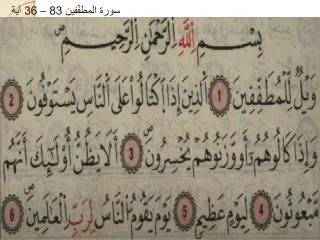 سورة المطفّفين 83 – 36 آية
بِسْمِ اللَّهِ الرَّحْمَٰنِ الرَّحِيمِ
وَيْلٌ لِّلْمُطَفِّفِينَ 1 الَّذِينَ إِذَا اكْتَالُوا عَلَى النَّاسِ يَسْتَوْفُونَ 2
وَإِذَا كَالُوهُمْ أَو وَّزَنُوهُمْ يُخْسِرُونَ 3 أَلَا يَظُنُّ أُولَٰئِكَ أَنَّهُم
مَّبْعُوثُونَ 4 لِيَوْمٍ عَظِيمٍ 5 يَوْمَ يَقُومُ النَّاسُ لِرَبِّ الْعَالَمِينَ 6